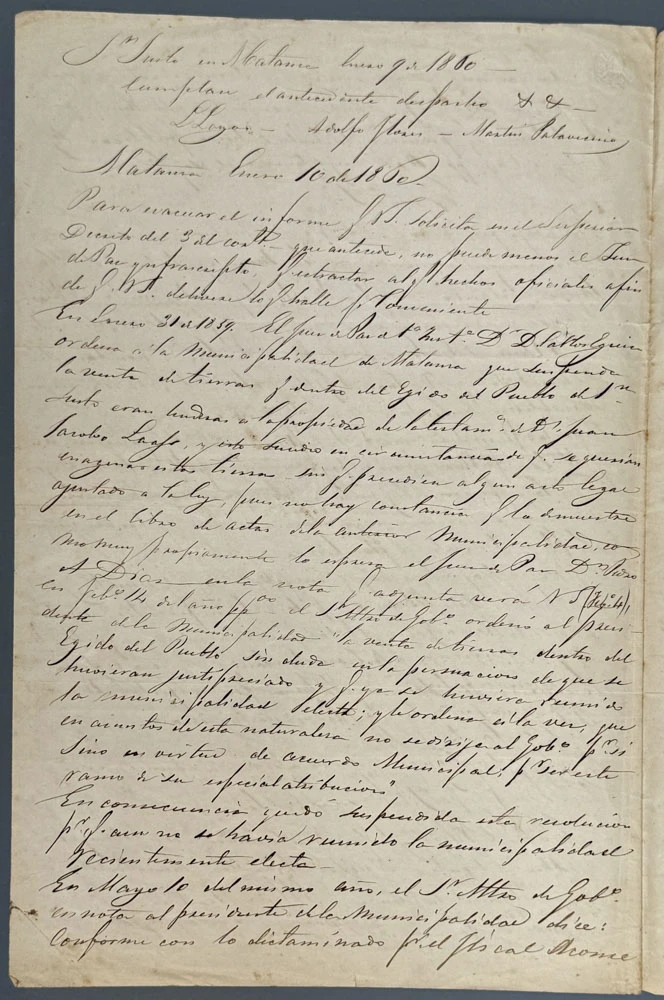 Sn Justo en Matanza Enero 9 de 1860 —
Cumplase el antecedente despacho & & —
Ll Lagos — Adolfo Flores — Martin
Matanza Enero 10 de 1860.
Para evacuar el informe q. V.S. solicita en el Superior
Decreto del 3 del corte. que antecede, no puede menos el Juez
de Paz ynfrascripto, q. extractar alg. hechos oficiales a fin
de q. V.S. delivere lo q. halle p. Conveniente
En Enero 31 de 1859. El Juez de Pas de 1a. Insta. Dr. D.
ordena a la Municipalidad de Matanza que suspenda
la venta de tierras q. dentro del Egido del Pueblo de Sn.
Justo eran linderas a la propiedad de la testama. de Dn. Juan
Jacobo Lagos, y esto sucedio en circunstancias de q. se querian
enagenar estas tierras sin q. precediera algun acto legal
ajustado a la ley, pues no hay constancia q. lo demuestre
en el libro de actas de la anterior Municipalidad, co
mo muy propiamente lo espresa el Juez de Paz Dn. Pedro
A Dias en la nota q. adjunta verá V S (
en Febo. 14 del año ppdo. el S Mtro de Gobo. ordenó al presi-
dente de la Municipalidad "la venta de tierras dentro del
Egido del Pueblo sin duda en la persuacion de que se
huvieran justipreciado y q. ya se huviera reunido
la municipalidad electa; y le ordena á la vez, que
en asuntos de esta naturalesa no se dirije al Gobo. pr. si
sino en virtud de acuerdo Municipal, pr. ser este
ramo de su especial atribucion"
En consecuencia quedó suspendida esta resolucion
pr. q. aun no se havia reunido la municipalidad
recientemente electa —
En Mayo 10 del mismo año, el Sr. Mtro de Gobo.
en nota al presidente de la Municipalidad dice:
Conforme con lo dictaminado pr. el fiscal